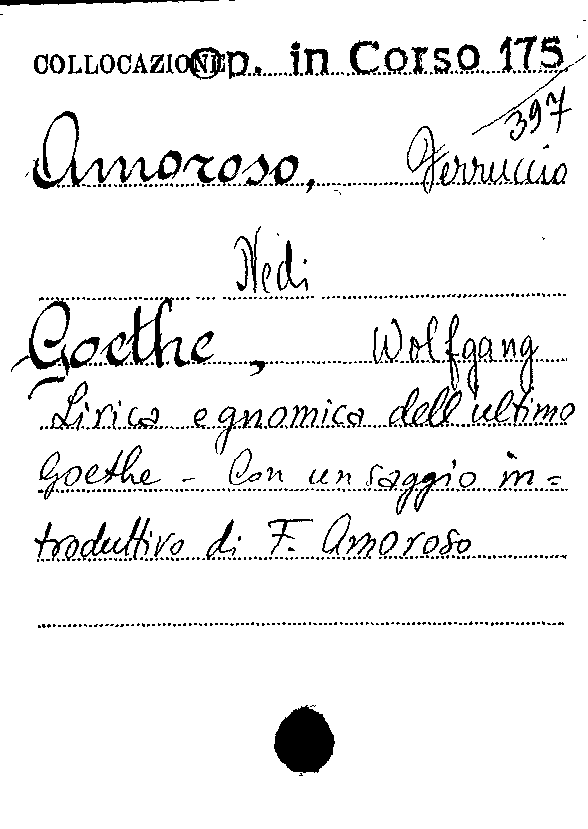 COLLOCAZIONE Op. in Corso 175
397
Amoroso, Ferruccio
Vedi
Goethe, Wolfgang
Lirica e gnomica dell'ultimo
Goethe - Con un saggio in=
troduttivo di F. Amoroso